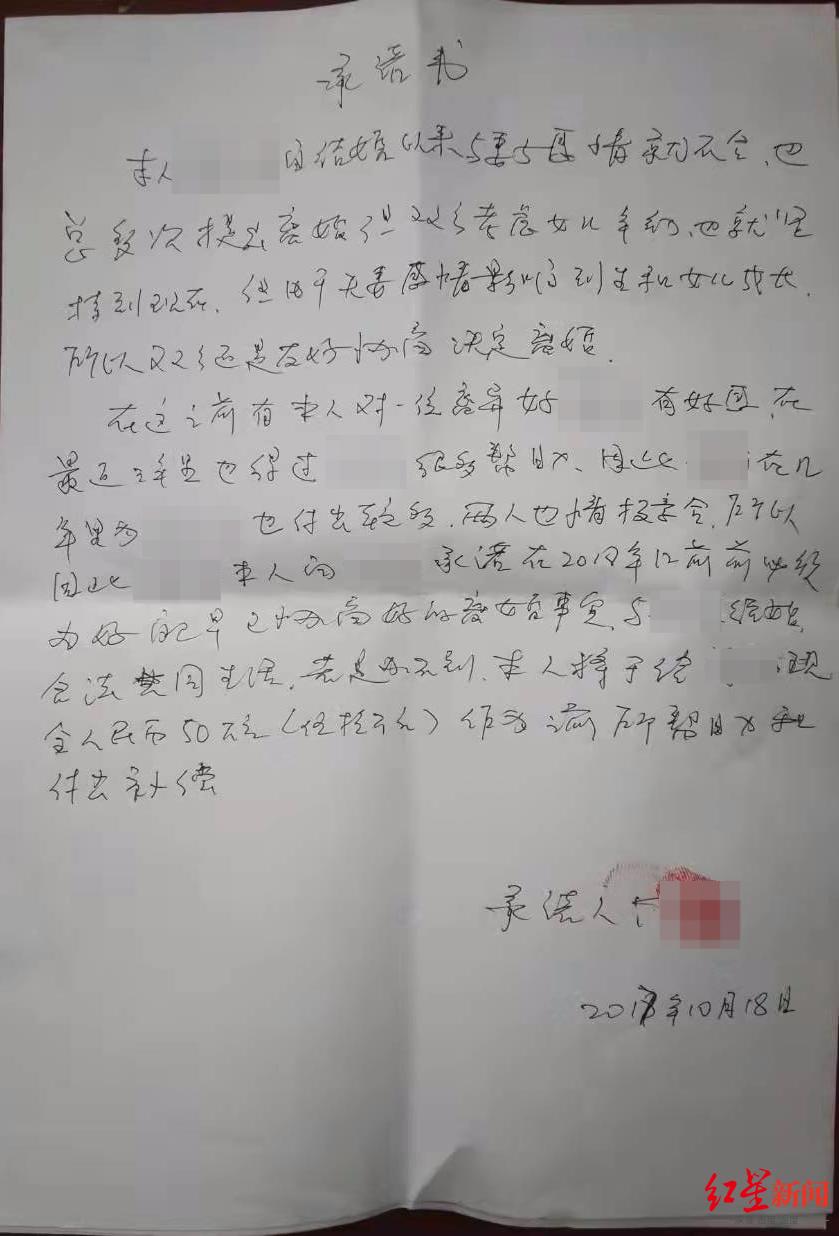 承诺书
本人 自结婚以来与妻子感情就不合、也
多次提出离婚但双方考虑女儿年幼、也就坚
持到现在、但由于夫妻感情影响到生和女儿成长、
所以双方还是友好协商决定离婚.
在这之前有本人对一位离异好 有好 在
最近三年里也得过 很多帮助、因此 在几
年里为 也付出 多、两人也情投意合、所以
因此 本人向 承诺在2018年12 前 必须
办好自己早已协商好的离婚事宜、与 结婚、
合法共同生活、若是办不到、本人将于给 现
金人民币50万元(伍拾万元)作为之前所帮助和
付出补偿
承诺人
2017年10月18日
红星新闻